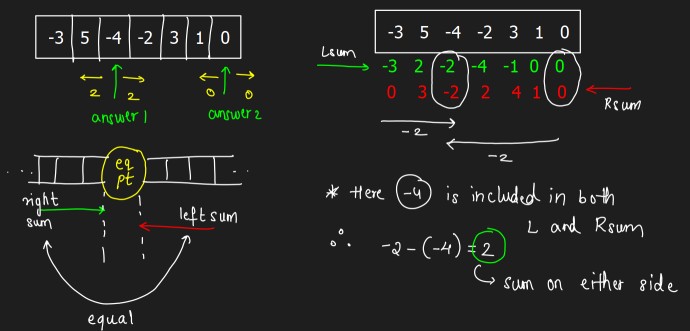 -3 5 -4 -2 3 1 0
2 2
0 0
answer 1
answer 2
... eq pt ...
right sum
left sum
equal
-3 5 -4 -2 3 1 0
Lsum
-3 2 -2 -4 -1 0 0
0 3 -2 2 4 1 0
Rsum
-2
-2
* Here -4 is included in both
L and Rsum
∴ -2 - (-4) = 2
sum on either side